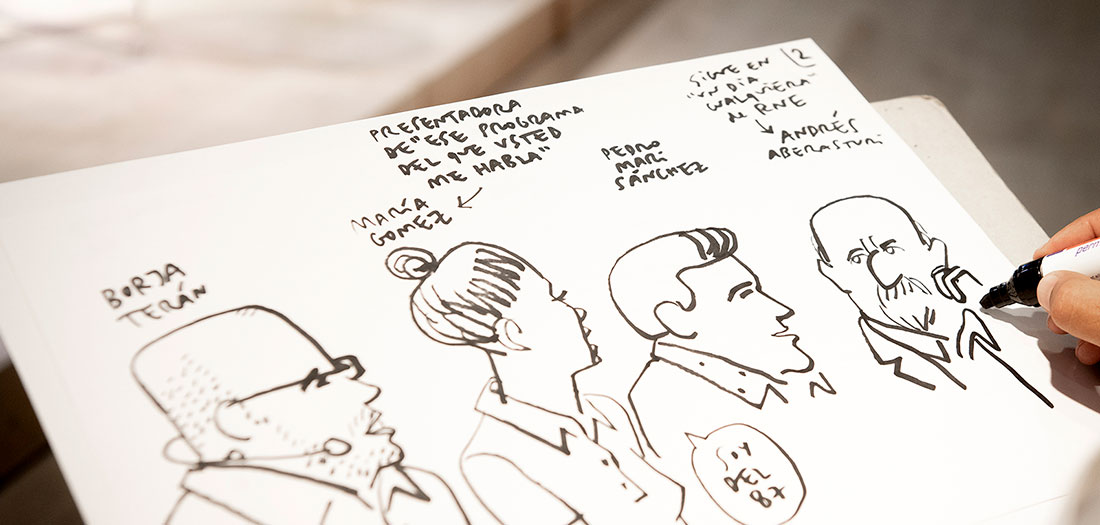 PRESENTADORA
DE "ESE PROGRAMA
DEL QUE USTED
ME HABLA"
MARÍA
GOMEZ
BORJA
TERÁN
PEDRO
MARI
SÁNCHEZ
SIGUE EN
"UN DIA
CUALQUIERA"
de RNE
ANDRÉS
ABERASTURI
2
SOY
DEL
87